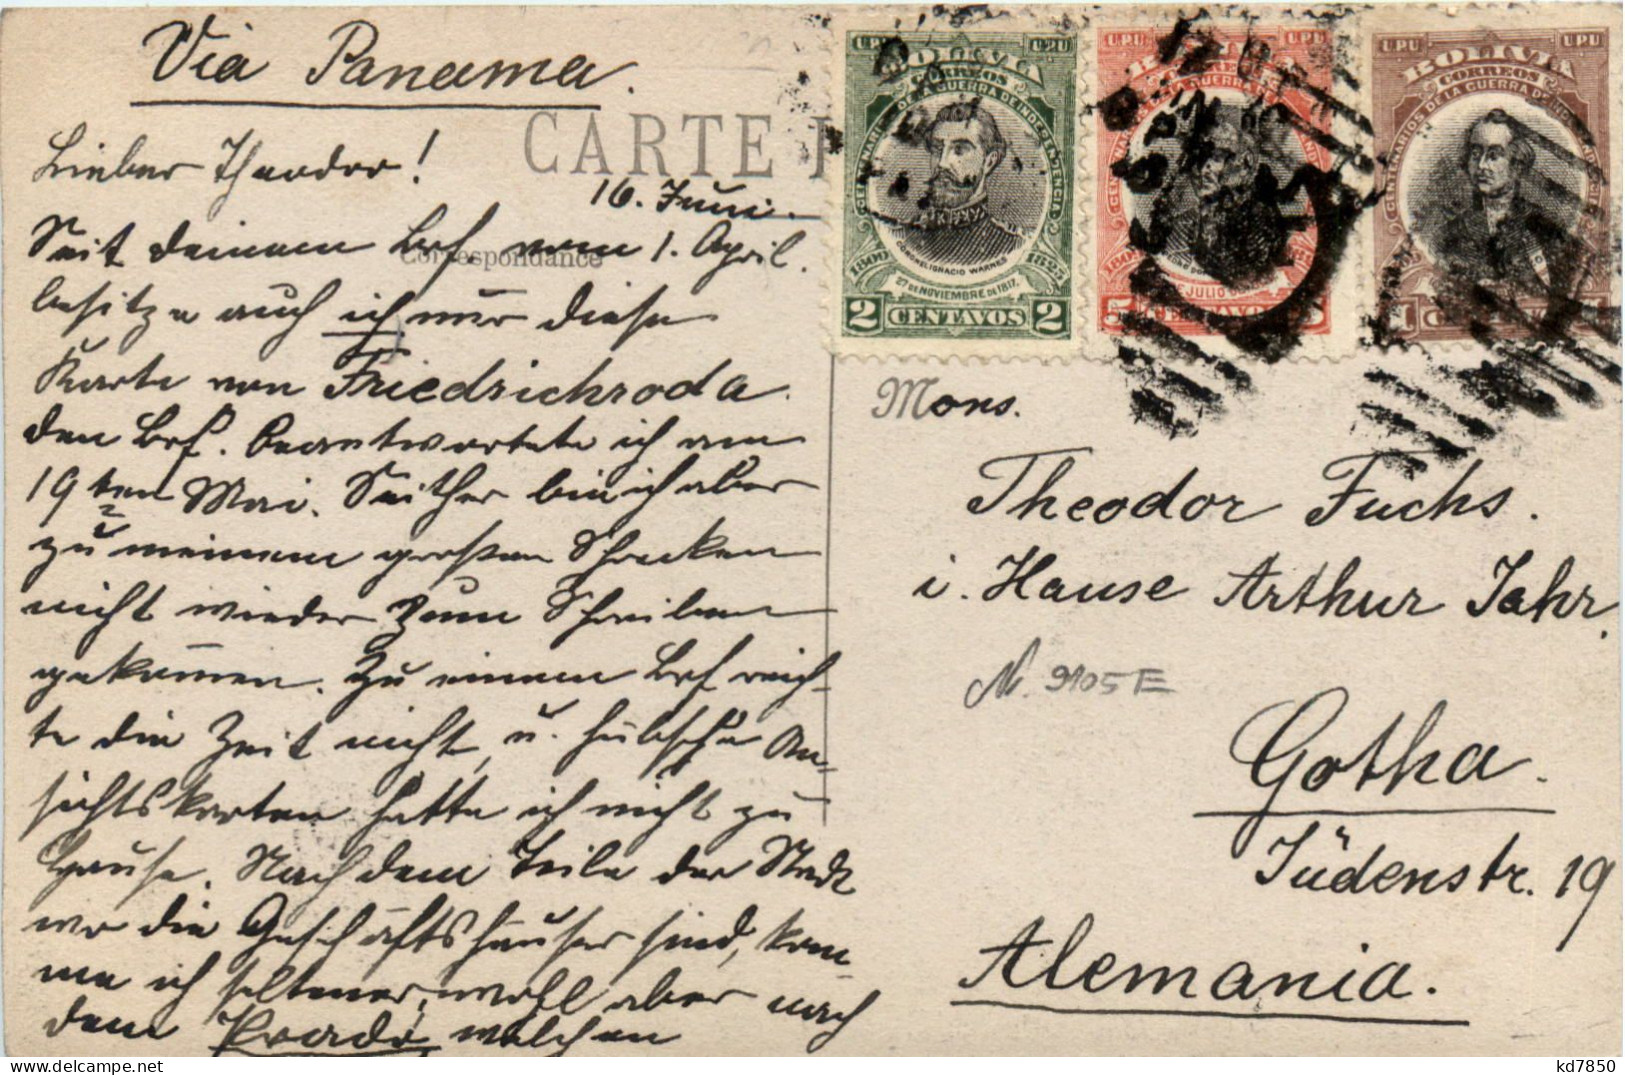 Via Panama.
CARTE P
Lieber Theodor!
16. Juni.
Correspondance
Seit deinem Brf. vom 1. April.
besitze auch ich nur diese
Karte von Friedrichroda.
den Brf. beantwortete ich am
19ten Mai. Seither bin ich aber
zu meinem großen Schrecken
nicht wieder zum Schreiben
gekom̄en. Zu einem Brf reich-
te die Zeit nicht, u. hübsche An-
sichtskarten hatte ich nicht zu
Hause. Nach dem Teile der Stadt
wo die Geschäftshäuser sind, kom-
me ich seltener, wohl aber nach
dem Prado, welchen
UPU BOLIVIA UPU
CORREOS
CENTENARIO DE LA GUERRA DE INDEPENDENCIA
CORONEL IGNACIO WARNES
1809 1825
27 DE NOVIEMBRE DE 1817.
2 CENTAVOS 2
U.P.U UPU
DE LA GUERRA
JULIO
5 CENTAVOS 5
UPU BOLIVIA UPU
CORREOS
CENTENARIOS DE LA GUERRA DE
1809
1
Mons.
Theodor Fuchs.
i. Hause Arthur Jahr.
N. 9105 E
Gotha.
Jüdenstr. 19
Alemania.
kd7850